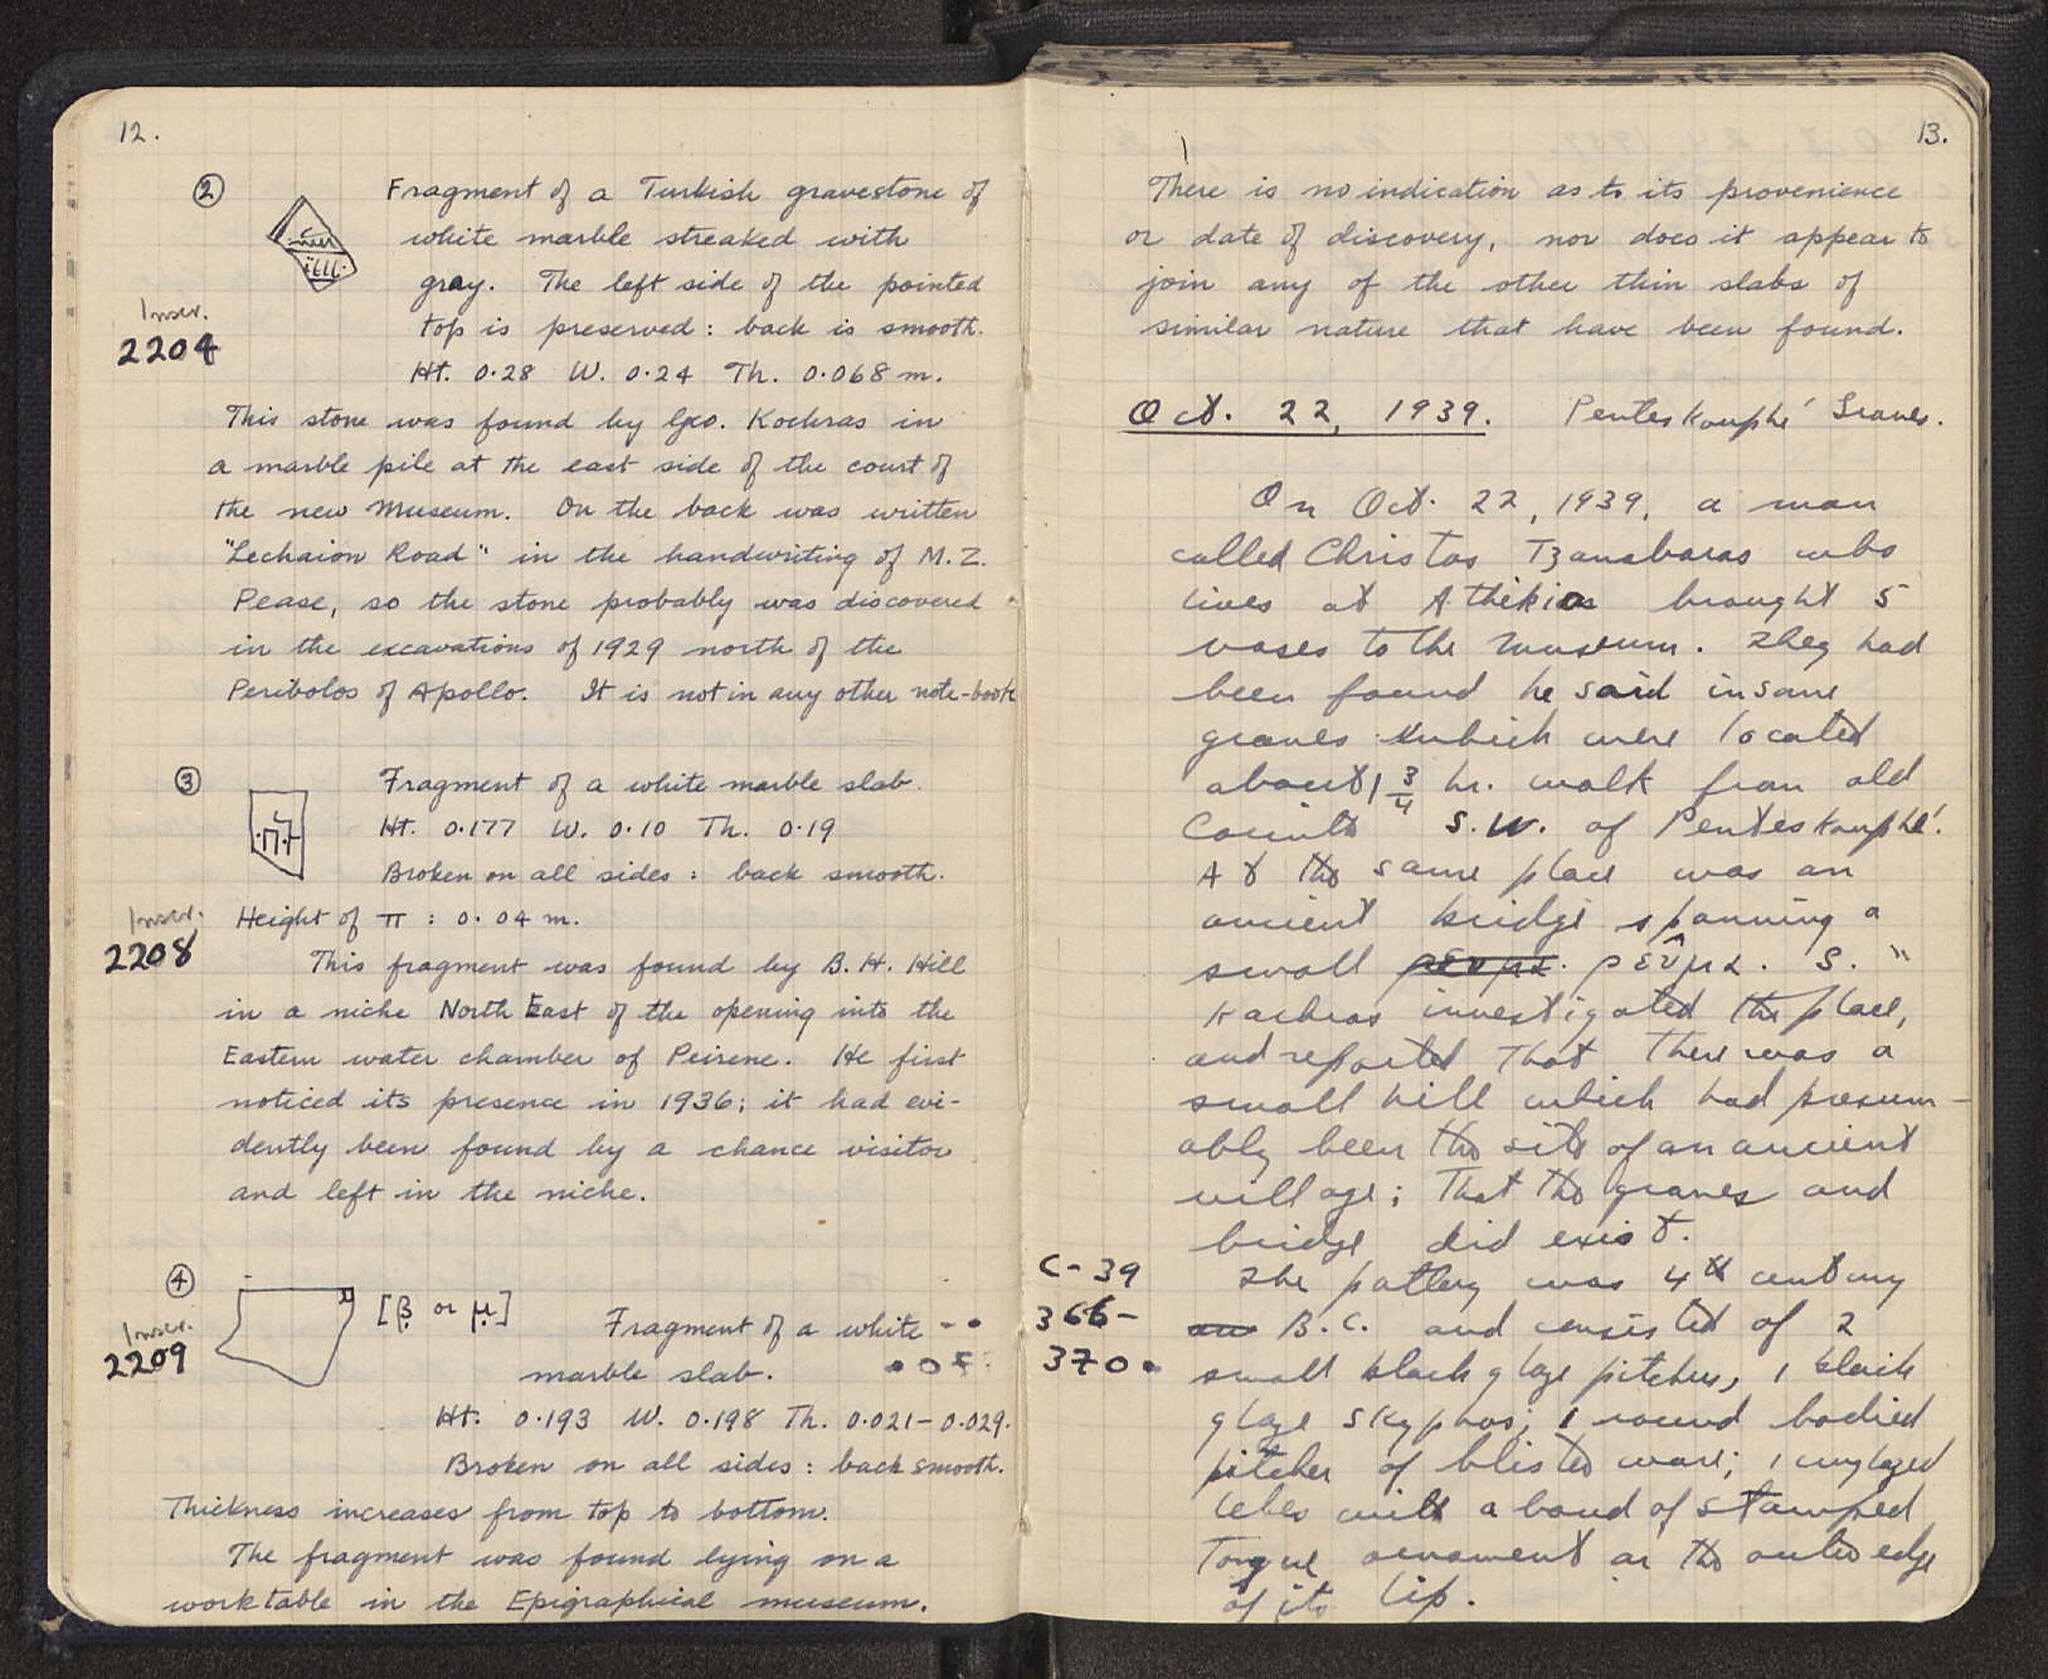 12.
②
Fragment of a Turkish gravestone of
white marble streaked with
gray. The left side of the pointed
top is preserved : back is smooth.
Inscr.
2204
Ht. 0.28 W. 0.24 Th. 0.068 m.
This stone was found by Geo. Kachras in
a marble pile at the east side of the court of
the new Museum. On the back was written
"Lechaion Road" in the handwriting of M. Z.
Pease, so the stone probably was discovered
in the excavations of 1929 north of the
Peribolos of Apollo. It is not in any other note-book
③
Fragment of a white marble slab.
Ht. 0.177 W. 0.10 Th. 0.19
Broken on all sides : back smooth.
Inscr.
2208
Height of π : 0.04 m.
This fragment was found by B. H. Hill
in a niche North East of the opening into the
Eastern water chamber of Peirene. He first
noticed its presence in 1936; it had evi-
dently been found by a chance visitor
and left in the niche.
④
[β or μ]
Inscr.
2209
Fragment of a white
marble slab.
Ht. 0.193 W. 0.198 Th. 0.021-0.029.
Broken on all sides : back smooth.
Thickness increases from top to bottom.
The fragment was found lying on a
work table in the Epigraphical museum.
13.
There is no indication as to its provenience
or date of discovery, nor does it appear to
join any of the other thin slabs of
similar nature that have been found.
Oct. 22, 1939. Penteskouphi Graves.
On Oct. 22, 1939, a man
called Christos Tzanabaras who
lives at Athikia brought 5
vases to the museum. They had
been found he said in some
graves which were located
about 1 3/4 hr. walk from old
Corinth S.W. of Penteskouphi.
At the same place was an
ancient bridge spanning a
small ρευμα. ρεῦμα. S.
Kachras investigated the place,
and reported that there was a
small hill which had presum-
ably been the site of an ancient
village; that the graves and
bridge did exist.
C-39
366-
370.
The pottery was 4th century
B.C. and consisted of 2
small black glaze pitchers, 1 black
glaze skyphos; 1 round bodied
pitcher of blister ware; 1 unglazed
lebes with a band of stamped
tongue ornament on the outer edge
of its lip.